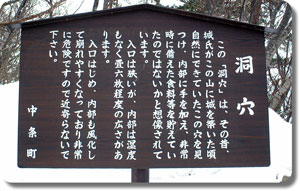 洞穴
この「洞穴」は、その昔、
城氏がこの山に城を築いた頃
自然にできていたこの穴を見
つけ、内部に手を加え、非常
時に備えた食料等を貯えてい
たのではないかと想像されて
います。
入口は狭いが、内部は湿度
もなく畳六枚程度の広さがあ
ります。
入口はじめ、内部も風化し
て崩れやすくなっており非常
に危険ですので近寄らないで
下さい。
中条町